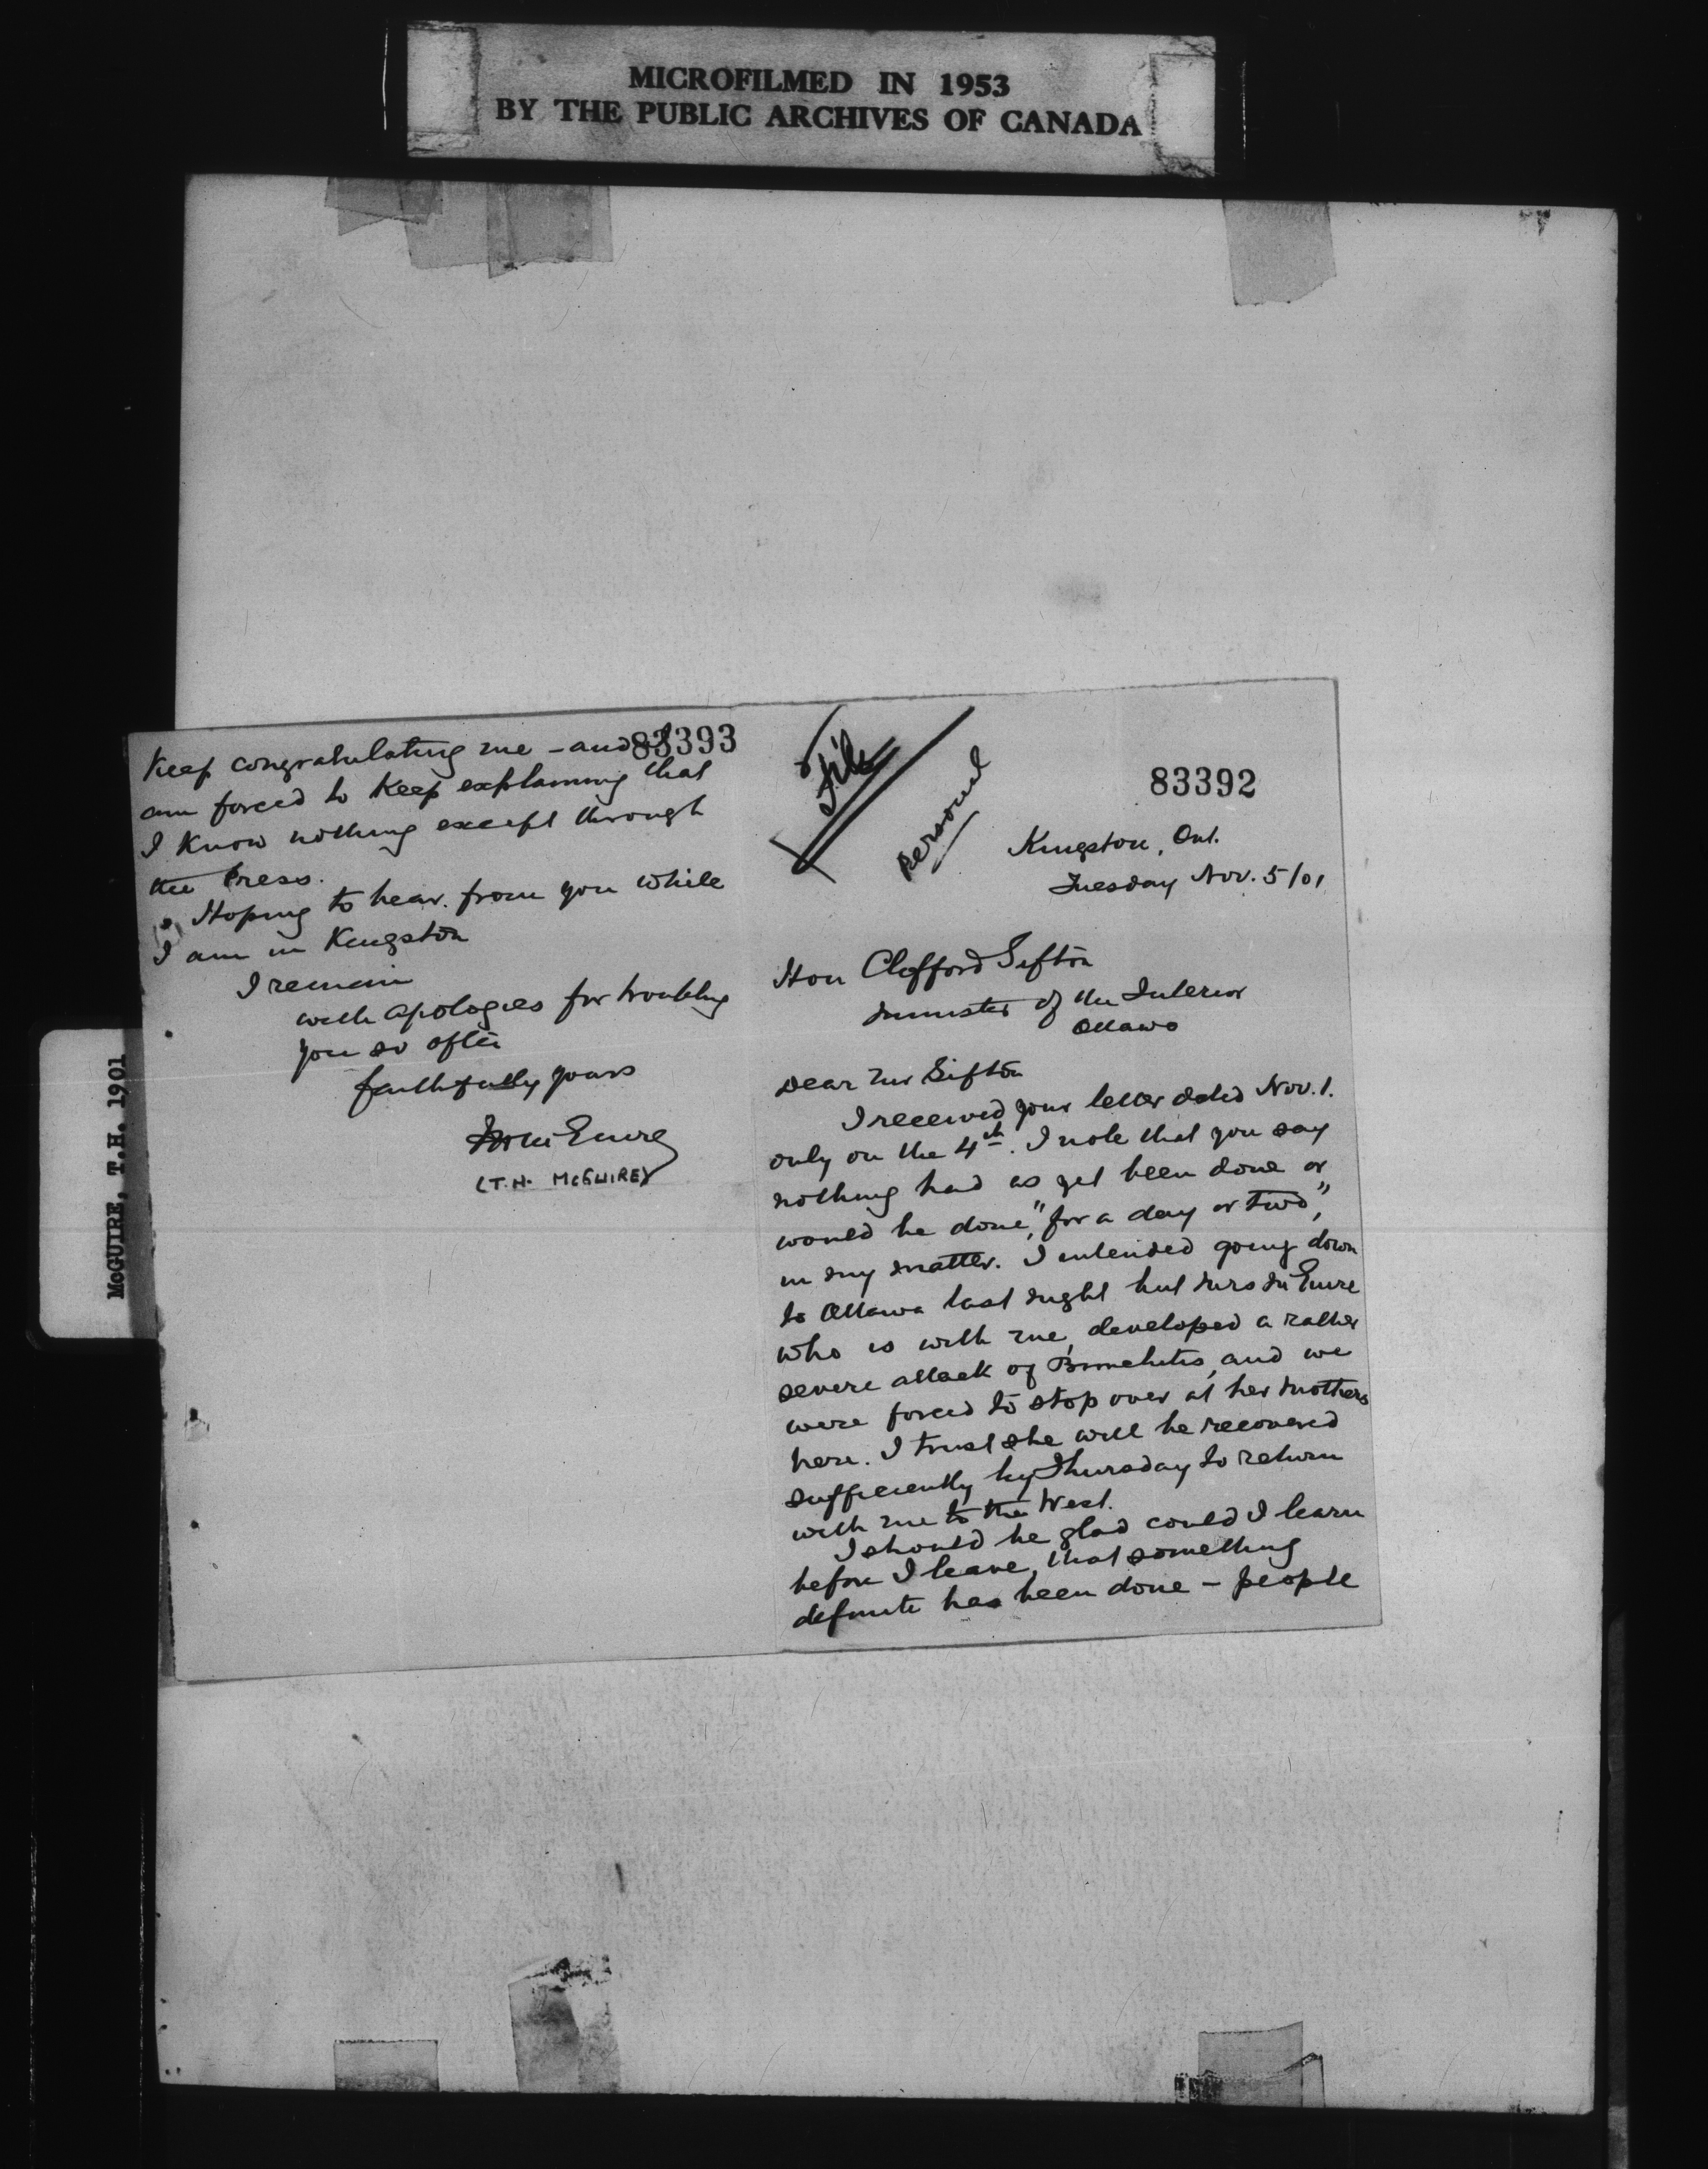 MICROFILMED IN 1953
BY THE PUBLIC ARCHIVES OF CANADA
McGUIRE, T.H. 1901
File
personal
83392
Kingston, Ont.
Tuesday Nov. 5/01
Hon Clifford Sifton
Minister of the Interior
Ottawa
Dear Mr Sifton
I received your letter dated Nov. 1.
only on the 4th. I note that you say
nothing had as yet been done or
would be done, "for a day or two",
in my matter. I intended going down
to Ottawa last night but Mrs McGuire
who is with me, developed a rather
severe attack of Bronchitis, and we
were forced to stop over at her mothers
here. I trust she will be recovered
sufficiently by Thursday to return
with me to the West.
I should be glad could I learn
before I leave, that something
definite has been done - people
83393
Keep congratulating me - and I
am forced to Keep explaining that
I Know nothing except through
the Press.
Hoping to hear from you while
I am in Kingston
I remain
with apologies for troubling
you so often
faithfully yours
McGuire
(T.H. McGUIRE)